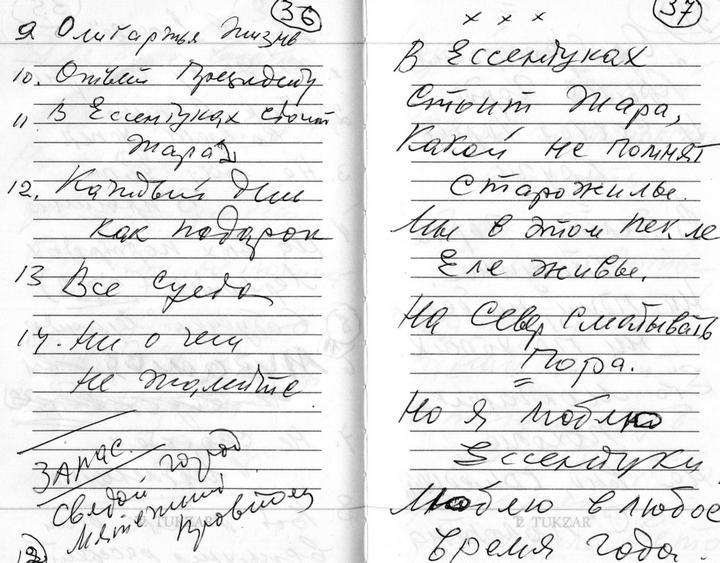 36
9. Олигаржья жизнь
10. Ответ Президенту
11. В Ессентуках стоит
жара
12. Каждый день
как подарок
13 Все суета
14. Ни о чем
не жалейте
ЗАПАС.
город
Мятежный
TUKZAR
37
х х х
В Ессентуках
стоит жара,
Какой не помнят
старожилы.
Мы в этом пекле
Еле живы.
На Север сматывать
Пора.
Но я люблю
Ессентуки,
Люблю в любое
TUKZAR
время года.